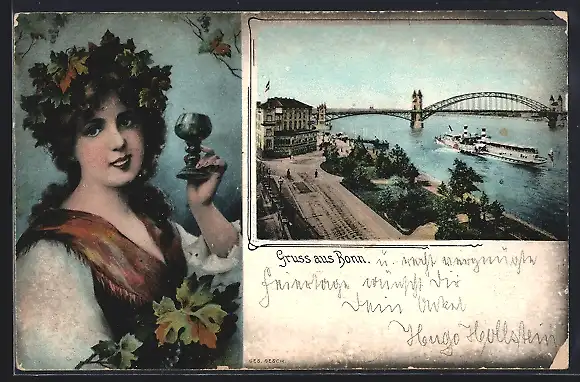 Gruss aus Bonn. u. recht vergnügte
Feiertage wünscht Dir
Dein Onkel
Hugo Hollstein
GES. GESCH.